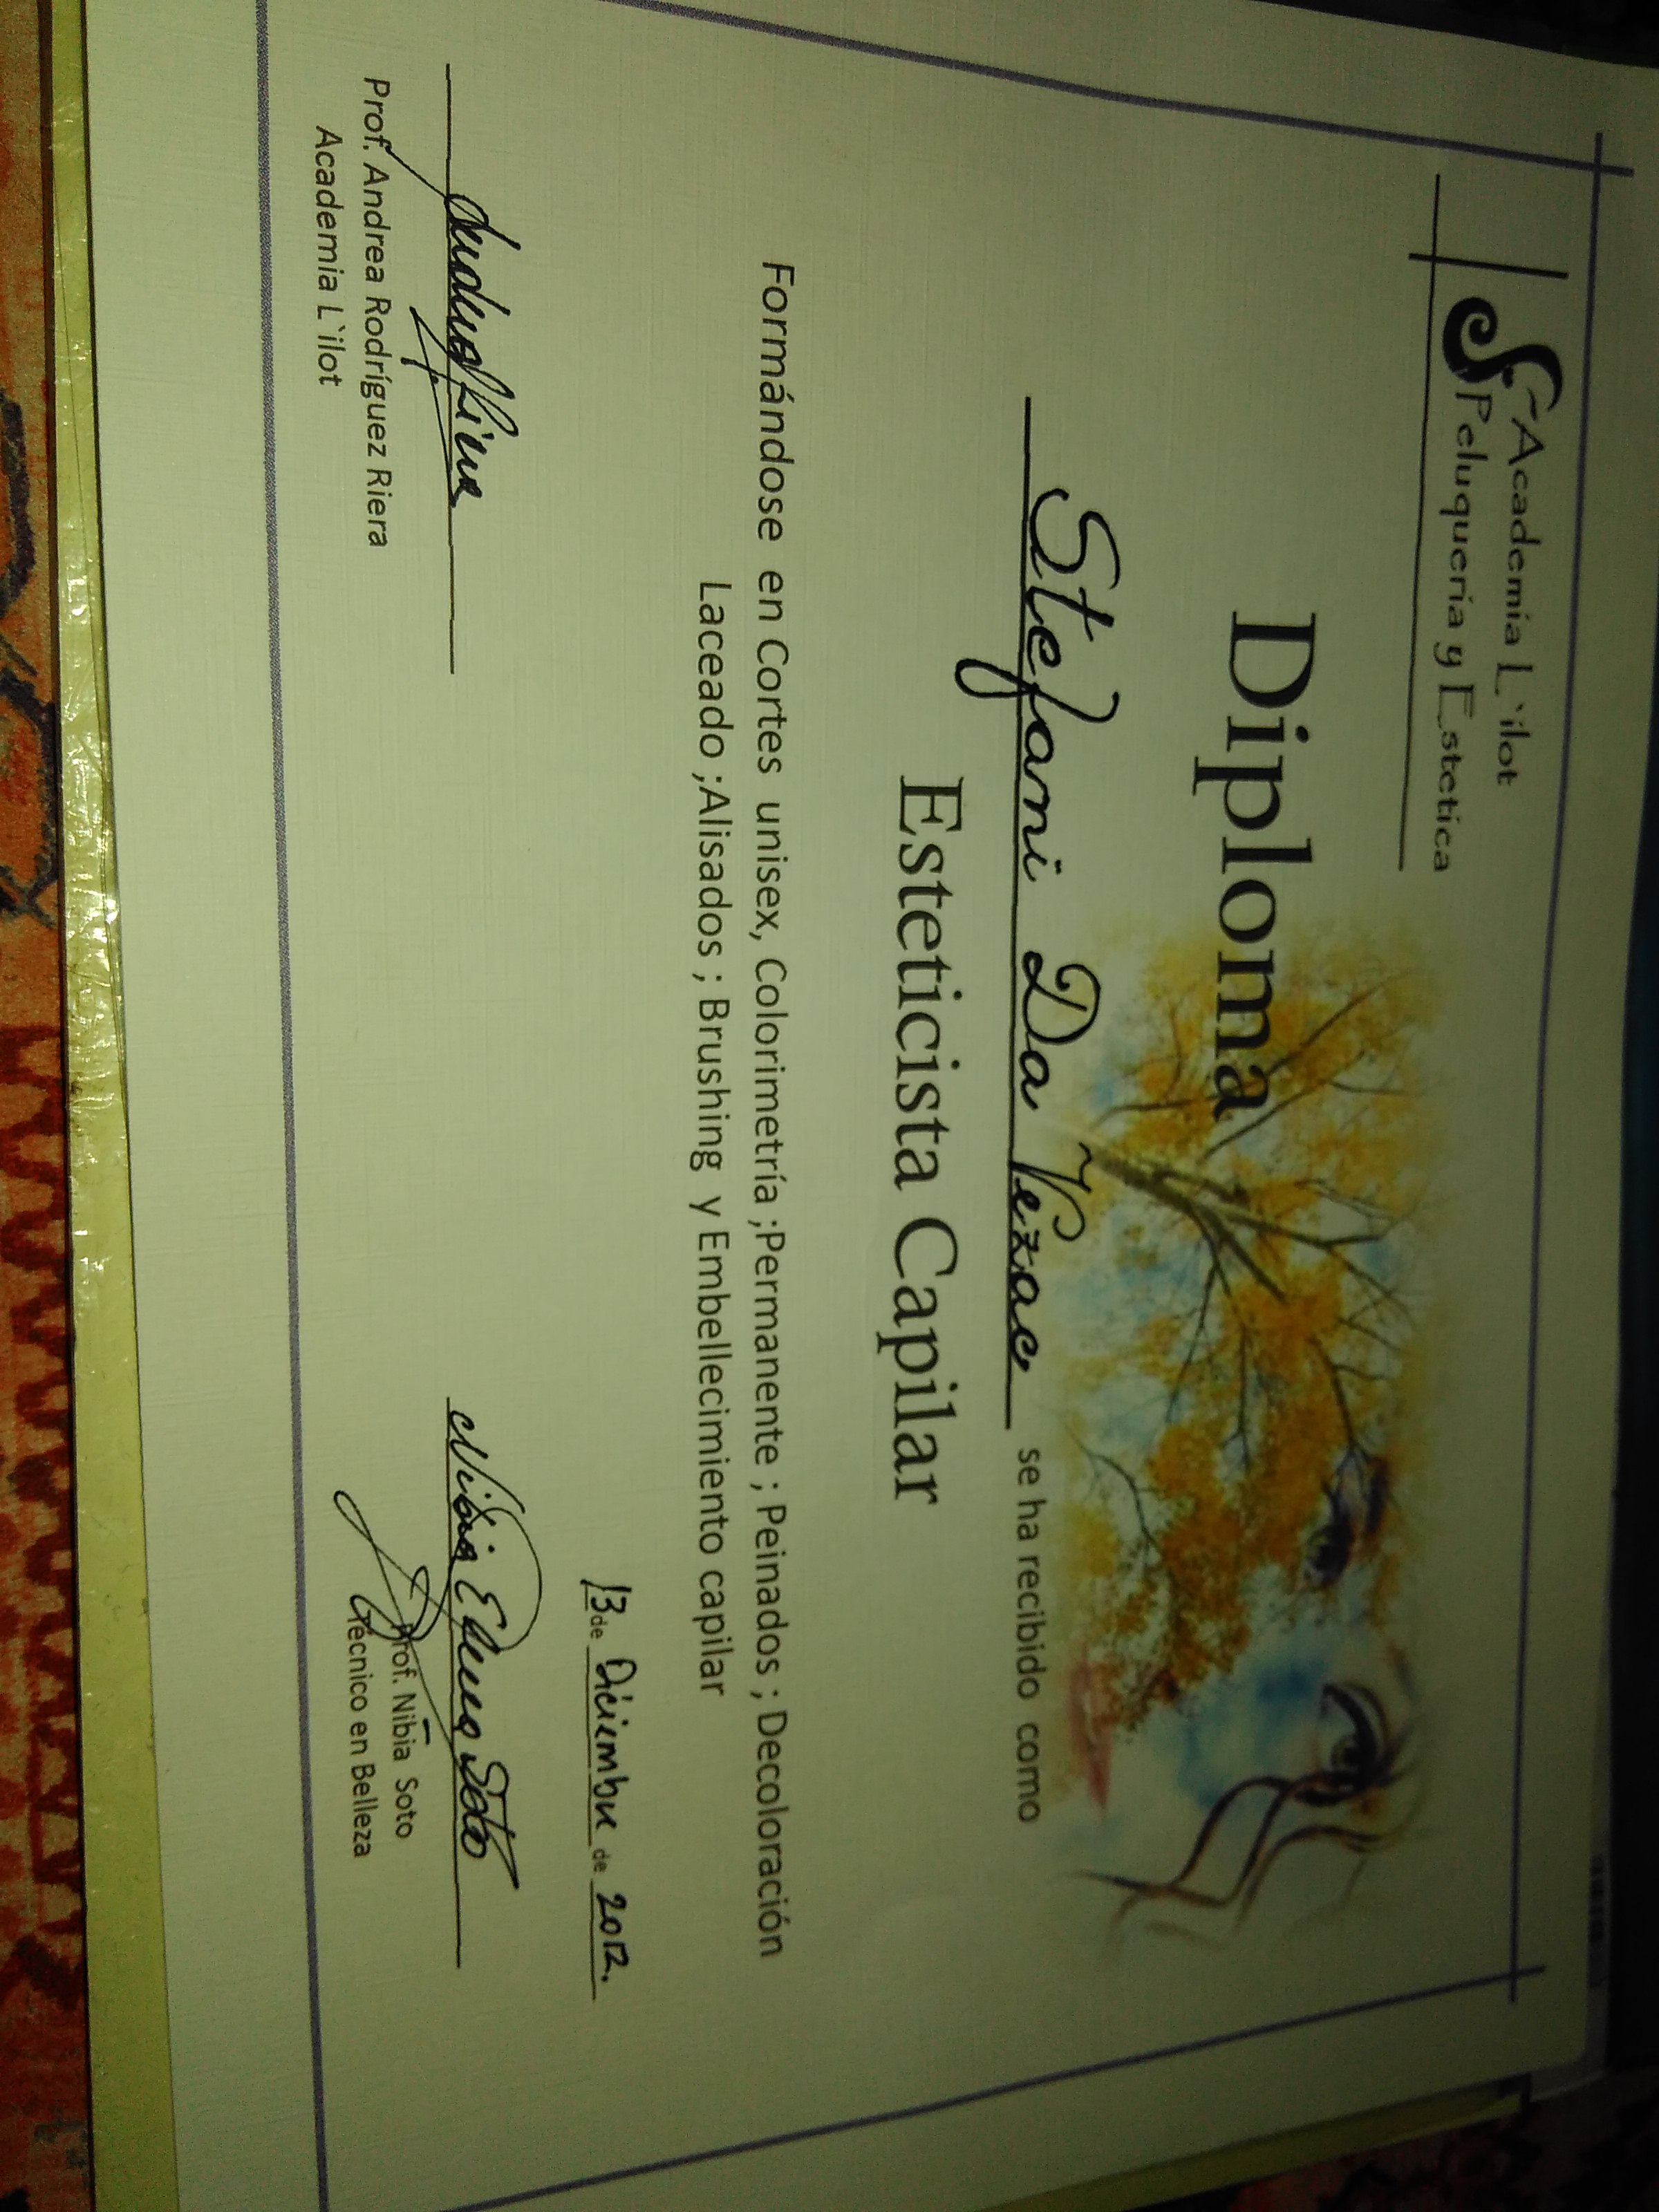 Academia L`ilot
Peluquería y Estetica
Diploma
Stefani Da Vezac se ha recibido como
Esteticista Capilar
Formándose en Cortes unisex, Colorimetría ;Permanente ; Peinados ; Decoloración
Laceado ;Alisados ; Brushing y Embellecimiento capilar
13 de Diciembre de 2012.
Andrea Riera
Nibia Elena Soto
Prof. Andrea Rodríguez Riera
Academia L`ilot
Prof. Nibia Soto
Técnico en Belleza